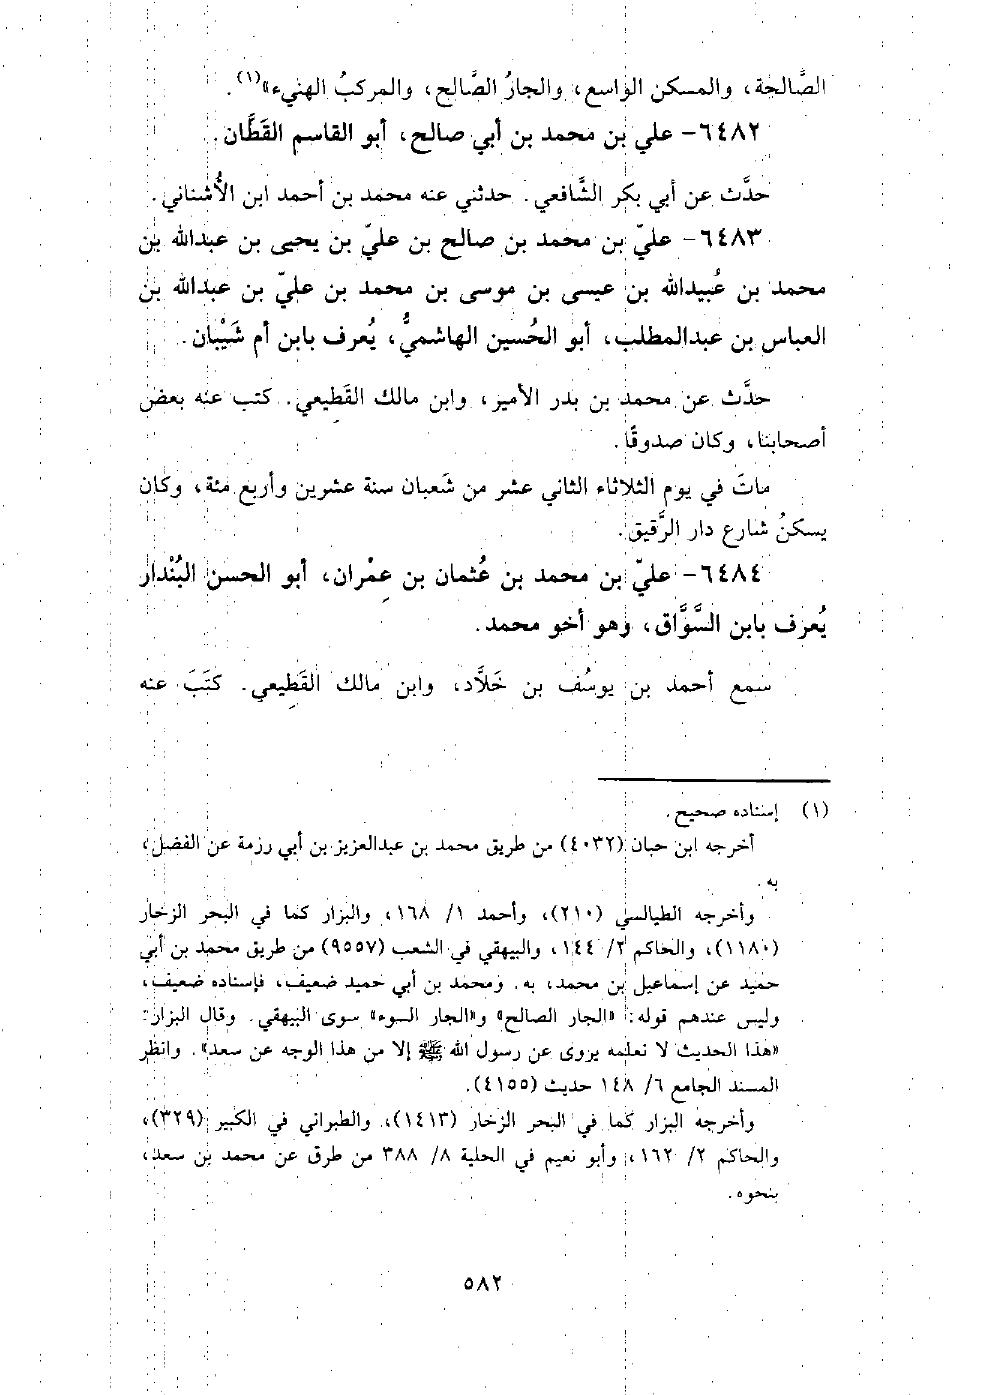 الصَّالحة، والمسكن الواسع، والجارُ الصَّالح، والمركبُ الهنيء»(١).
٦٤٨٢- علي بن محمد بن أبي صالح، أبو القاسم القَطَّان.
حدَّث عن أبي بكر الشَّافعي. حدثني عنه محمد بن أحمد ابن الأُشناني.
٦٤٨٣- عليّ بن محمد بن صالح بن عليّ بن يحيى بن عبدالله بن
محمد بن عُبيدالله بن عيسى بن موسى بن محمد بن عليّ بن عبدالله بن
العباس بن عبدالمطلب، أبو الحُسين الهاشميُّ، يُعرف بابن أم شَيْبان.
حدَّث عن محمد بن بدر الأمير، وابن مالك القَطِيعي. كتب عنه بعض
أصحابنا، وكان صدوقًا.
ماتَ في يوم الثلاثاء الثاني عشر من شَعبان سنة عشرين وأربع مئة، وكان
يسكنُ شارع دار الرَّقيق.
٦٤٨٤- عليّ بن محمد بن عُثمان بن عِمْران، أبو الحسن البُنْدار
يُعرف بابن السَّوَّاق، وهو أخو محمد.
سمع أحمد بن يوسُف بن خَلَّاد، وابن مالك القَطِيعي. كتَبَ عنه
(١) إسناده صحيح.
أخرجه ابن حبان (٤٠٣٢) من طريق محمد بن عبدالعزيز بن أبي رزمة عن الفضل،
به.
وأخرجه الطيالسي (٢١٠)، وأحمد ١/ ١٦٨، والبزار كما في البحر الزخار
(١١٨٠)، والحاكم ٢/ ١٤٤، والبيهقي في الشعب (٩٥٥٧) من طريق محمد بن أبي
حميد عن إسماعيل بن محمد، به. ومحمد بن أبي حميد ضعيف، فإسناده ضعيف،
وليس عندهم قوله: «الجار الصالح» و«الجار السوء» سوى البيهقي. وقال البزار:
«هذا الحديث لا نعلمه يروى عن رسول الله ﷺ إلا من هذا الوجه عن سعد». وانظر
المسند الجامع ٦/ ١٤٨ حديث (٤١٥٥).
وأخرجه البزار كما في البحر الزخار (١٤١٣)، والطبراني في الكبير (٣٢٩)،
والحاكم ٢/ ١٦٢، وأبو نعيم في الحلية ٨/ ٣٨٨ من طرق عن محمد بن سعد،
بنحوه.
٥٨٢